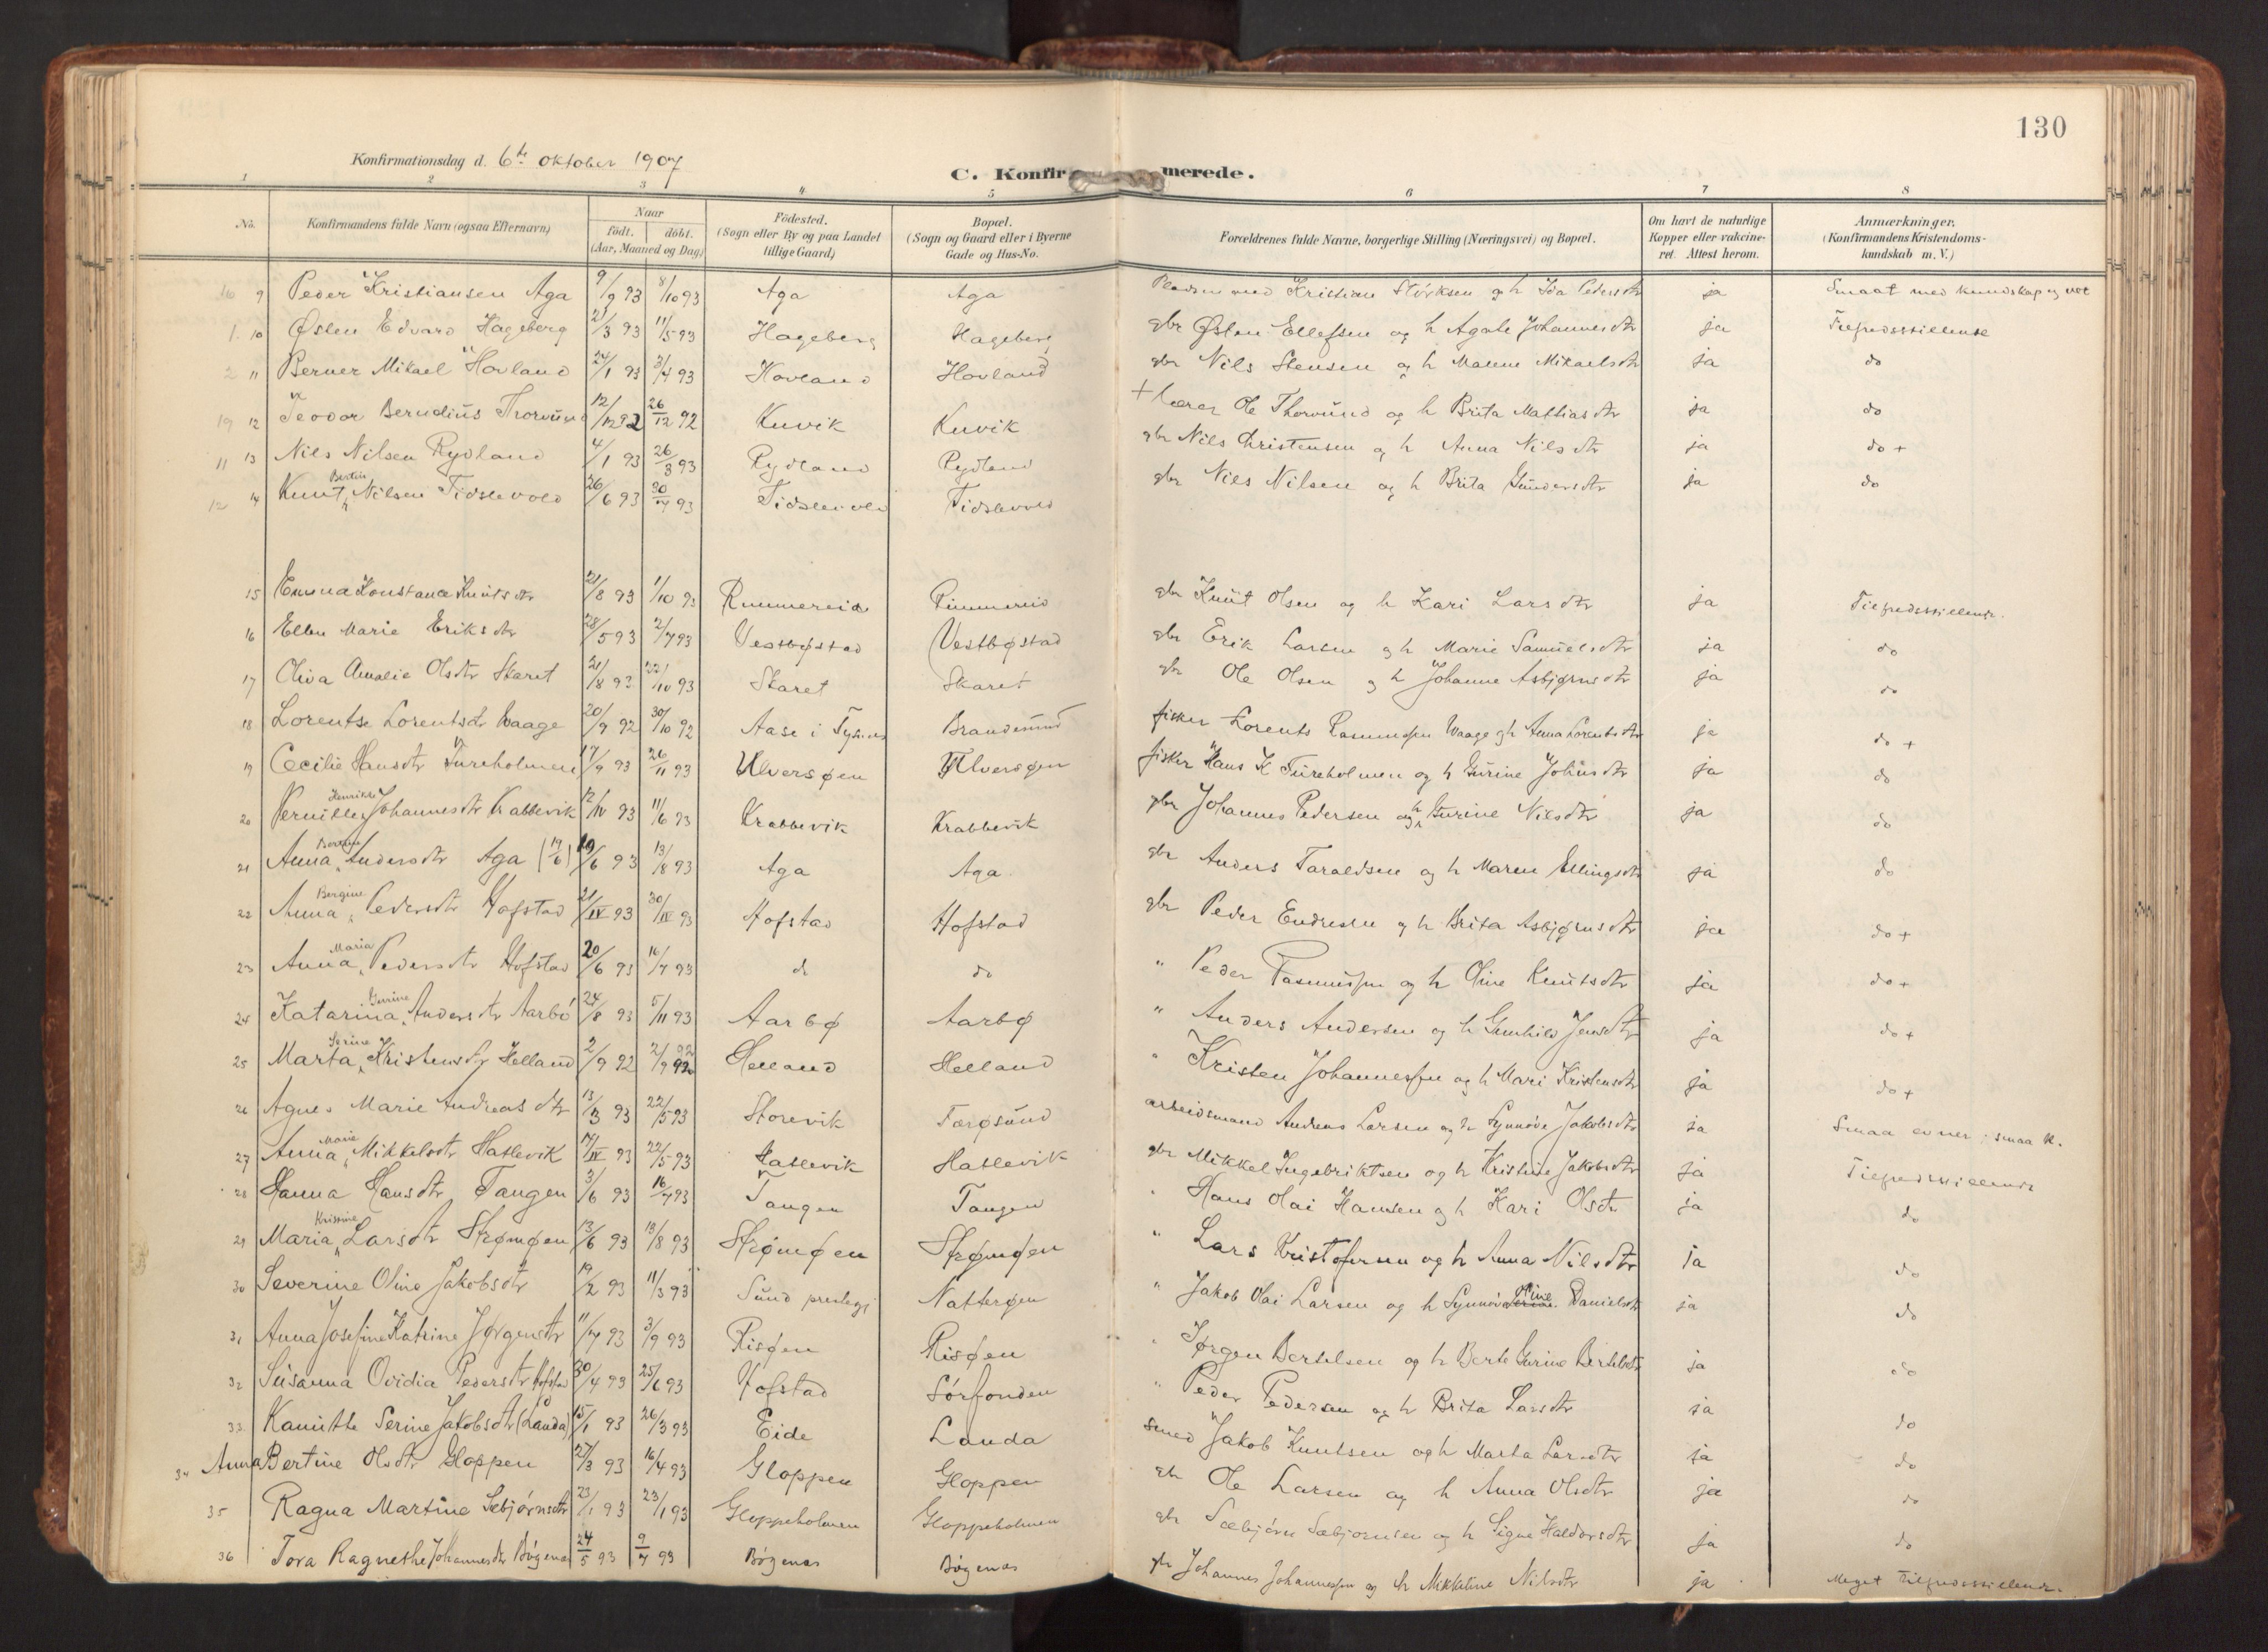 130
Konfirmationsdag d. 6te Oktober 1907
C. Konfirmerede.
1 2 3 4 5 6 7 8
No. Konfirmandens fulde Navn (ogsaa Efternavn) Naar født. døbt. (Aar, Maaned og Dag) Fødested. (Sogn eller By og paa Landet tillige Gaard) Bopæl. (Sogn og Gaard eller i Byerne Gade og Hus-No. Forældrenes fulde Navne, borgerlige Stilling (Næringsvei) og Bopæl. Om havt de naturlige Kopper eller vakcineret. Attest herom. Anmærkninger. (Konfirmandens Kristendomskundskab m. V.)
16 9 Peder Kristiansen Aga 9/9 93 8/10 93 Aga Aga Kristian Størksen og h Ida Pedersdtr ja Smaat med kundskap og vet
1. 10 Østen Edvard Hageberg 21/3 93 11/5 93 Hageberg Hageberg gbr Østen Ellefsen og h Agate Johannesdtr ja Tilfredsstillende
2 11 Berner Mikael Hovland 24/1 93 3/4 93 Hovland Hovland gbr Nils Stensen og h Malene Mikaelsdtr ja do
19 12 Teodor Berndius Thorvund 12/12 92 26/12 92 Kuvik Kuvik + lærer Ole Thorvund og h Brita Mattiasdtr ja do
11 13 Nils Nilsen Rydland 4/1 93 26/3 93 Rydland Rydland gbr Nils Christensen og h Anna Nilsdtr ja do +
12 14 Knut Bertin Nilsen Tidslevold 26/6 93 30/7 93 Tidslevold Tidslevold gbr Nils Nilsen og h Brita Gundersdtr ja do
15 Emma Konstance Knutsdtr 21/8 93 1/10 93 Rimmereid Rimmereid gbr Knut Olsen og h Kari Larsdtr ja Tilfredsstillende.
16 Ellen Marie Eriksdtr 28/5 93 2/7 93 Vestbøstad Vestbøstad gbr Erik Larsen og h Marie Samuelsdtr ja do
17 Oliva Amalie Olsdtr Skaret 21/8 93 22/10 93 Skaret Skaret gbr Ole Olsen og h Johanne Asbjørnsdtr ja do
18 Lorentse Lorentsdtr Waage 20/9 92 30/10 92 Aase i Tysnes Brandesund fisker Lorents Rasmussen Waage og h Anna Lorentsdtr ja do +
19 Cecilie Hansdtr Tureholmen 17/9 93 26/11 93 Ulversøen Ulversøen fisker Hans K Tureholmen og h Gurine Johnsdtr ja do
20 Pernille Henrikke Johannesdtr Krabbevik 12/IV 93 11/6 93 Krabbevik Krabbevik gbr Johannes Pedersen og h Gurine Nilsdtr ja do
21 Anna Bertine Andersdtr Aga (19/6) 19/6 93 13/8 93 Aga Aga gbr Anders Taraldsen og h Maren Ellingsdtr ja do
22 Anna Bergine Pedersdtr Hofstad 21/IV 93 30/IV 93 Hofstad Hofstad gbr Peder Endresen og h Brita Asbjørnsdtr ja do +
23 Anna Maria Pedersdtr Hofstad 20/6 93 16/7 93 do do " Peder Rasmussen og h Oline Knutsdtr ja do +
24 Katarina Gurine Andersdtr Aarbø 24/8 93 5/11 93 Aarbø Aarbø " Anders Andersen og h Gunhild Jensdtr ja do +
25 Marta Serine Kristensdtr Helland 2/9 92 2/9 92 Helland Helland " Kristen Johannessen og h Mari Kristensdtr ja do +
26 Agnes Marie Andreasdtr 13/3 93 22/5 93 Storevik Færøsund arbeidsmand Andreas Larsen og h Synnøve Jakobsdtr ja Smaa evner; smaa k.
27 Anna Marie Mikkelsdtr Hatlevik 17/IV 93 22/5 93 Hatlevik Hatlevik gbr Mikkel Ingebriktsen og h Kristine Jakobsdtr ja Tilfredsstillende
28 Hanna Hansdtr Tangen 3/6 93 16/7 93 Tangen Tangen " Hans Olai Hansen og h Kari Olsdtr ja do
29 Maria Kristine Larsdtr Strømøen 13/6 93 13/8 93 Strømøen Strømøen " Lars Kristofersen og h Anna Nilsdtr ja do
30 Severine Oline Jakobsdtr 19/2 93 11/3 93 Sund prestegj Nattersøen " Jakob Olai Larsen og h Synnøve Oline Danielsdtr ja do
31 Anna Josefine Katrine Jørgensdtr 11/7 93 3/9 93 Risøen Risøen " Jørgen Bertelsen og h Berte Gurine Bertelsdtr ja do
32 Susanna Ovidia Pedersdtr Hofstad 30/4 93 25/6 93 Hofstad Sørfonden " Peder Pedersen og h Brita Larsdtr ja do
33 Kanutte Serine Jakobsdtr (Landa) 15/1 93 26/3 93 Eide Landa smed Jakob Knutsen og h Marta Larsdtr ja do
34 Anna Bertine Olsdtr Gloppen 27/3 93 16/4 93 Gloppen Gloppen gbr Ole Larsen og h Anna Olsdtr ja do
35 Ragna Martine Sæbjørnsdtr 23/1 93 23/1 93 Gloppeholmen Gloppeholmen gbr Sæbjørn Sæbjørnsen og h Signe Haldorsdtr ja do
36 Tora Ragnethe Johannesdtr Bøgenæs 24/5 93 9/7 93 Bøgenæs Bøgenæs gbr Johannes Johannessen og h Mikkeline Nilsdtr ja Meget tilfredsstillende.